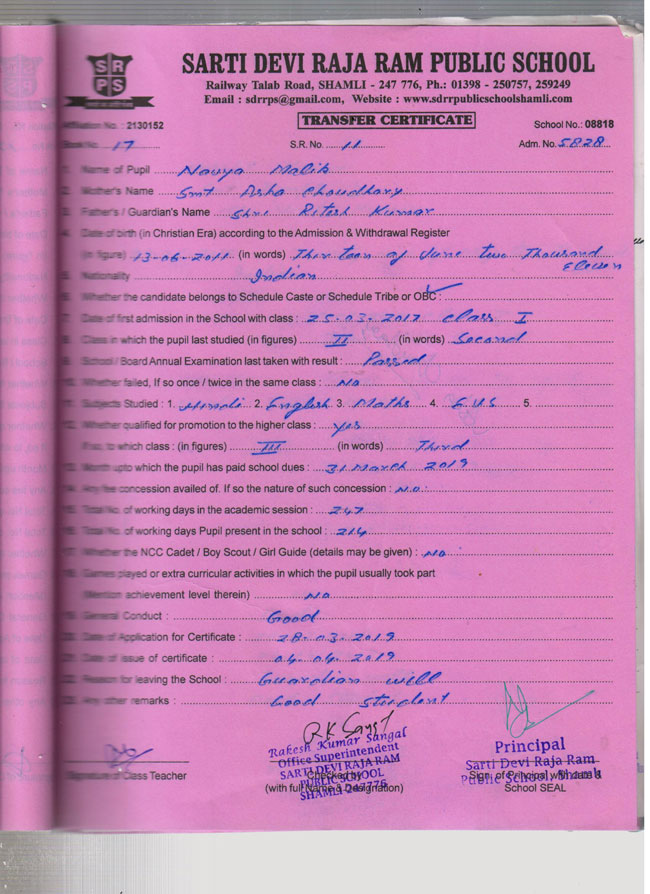 SRPS
SARTI DEVI RAJA RAM PUBLIC SCHOOL
Railway Talab Road, SHAMLI - 247 776, Ph.: 01398 - 250757, 259249
Email : sdrrps@gmail.com, Website : www.sdrrpublicschoolshamli.com
TRANSFER CERTIFICATE
Affiliation No. : 2130152 School No.: 08818
Book No. 17 S.R. No. 11 Adm. No. 5828
1. Name of Pupil Navya Malik
2. Mother's Name Smt Asha Choudhary
3. Father's / Guardian's Name Shri Ritesh Kumar
4. Date of birth (in Christian Era) according to the Admission & Withdrawal Register
(in figure) 13-06-2011 (in words) Thirteen of June two Thousand
Eleven
5. Nationality Indian
6. Whether the candidate belongs to Schedule Caste or Schedule Tribe or OBC :
7. Date of first admission in the School with class : 25.03.2017 Class I
8. Class in which the pupil last studied (in figures) II (in words) Second
9. School / Board Annual Examination last taken with result : Passed
10. Whether failed, If so once / twice in the same class : No
11. Subjects Studied : 1. Hindi 2. English 3. Maths 4. E.V.S 5.
12. Whether qualified for promotion to the higher class : yes
If so, to which class : (in figures) III (in words) Third
13. Month upto which the pupil has paid school dues : 31 March 2019
14. Any fee concession availed of. If so the nature of such concession : No
15. Total No. of working days in the academic session : 247
16. Total No. of working days Pupil present in the school : 214
17. Whether the NCC Cadet / Boy Scout / Girl Guide (details may be given) : No
18. Games played or extra curricular activities in which the pupil usually took part
(Mention achievement level therein) No
19. General Conduct : Good
20. Date of Application for Certificate : 28.03.2019
21. Date of issue of certificate : 04.04.2019
22. Reason for leaving the School : Guardian will
23. Any other remarks : Good student
RK Sangal
Rakesh Kumar Sangal
Office Superintendent
SARTI DEVI RAJA RAM
PUBLIC SCHOOL
SHAMLI-247776
Principal
Sarti Devi Raja Ram
Public School, Shamli
Signature of Class Teacher
Checked by
(with full Name & Designation)
Sign. of Principal with date &
School SEAL